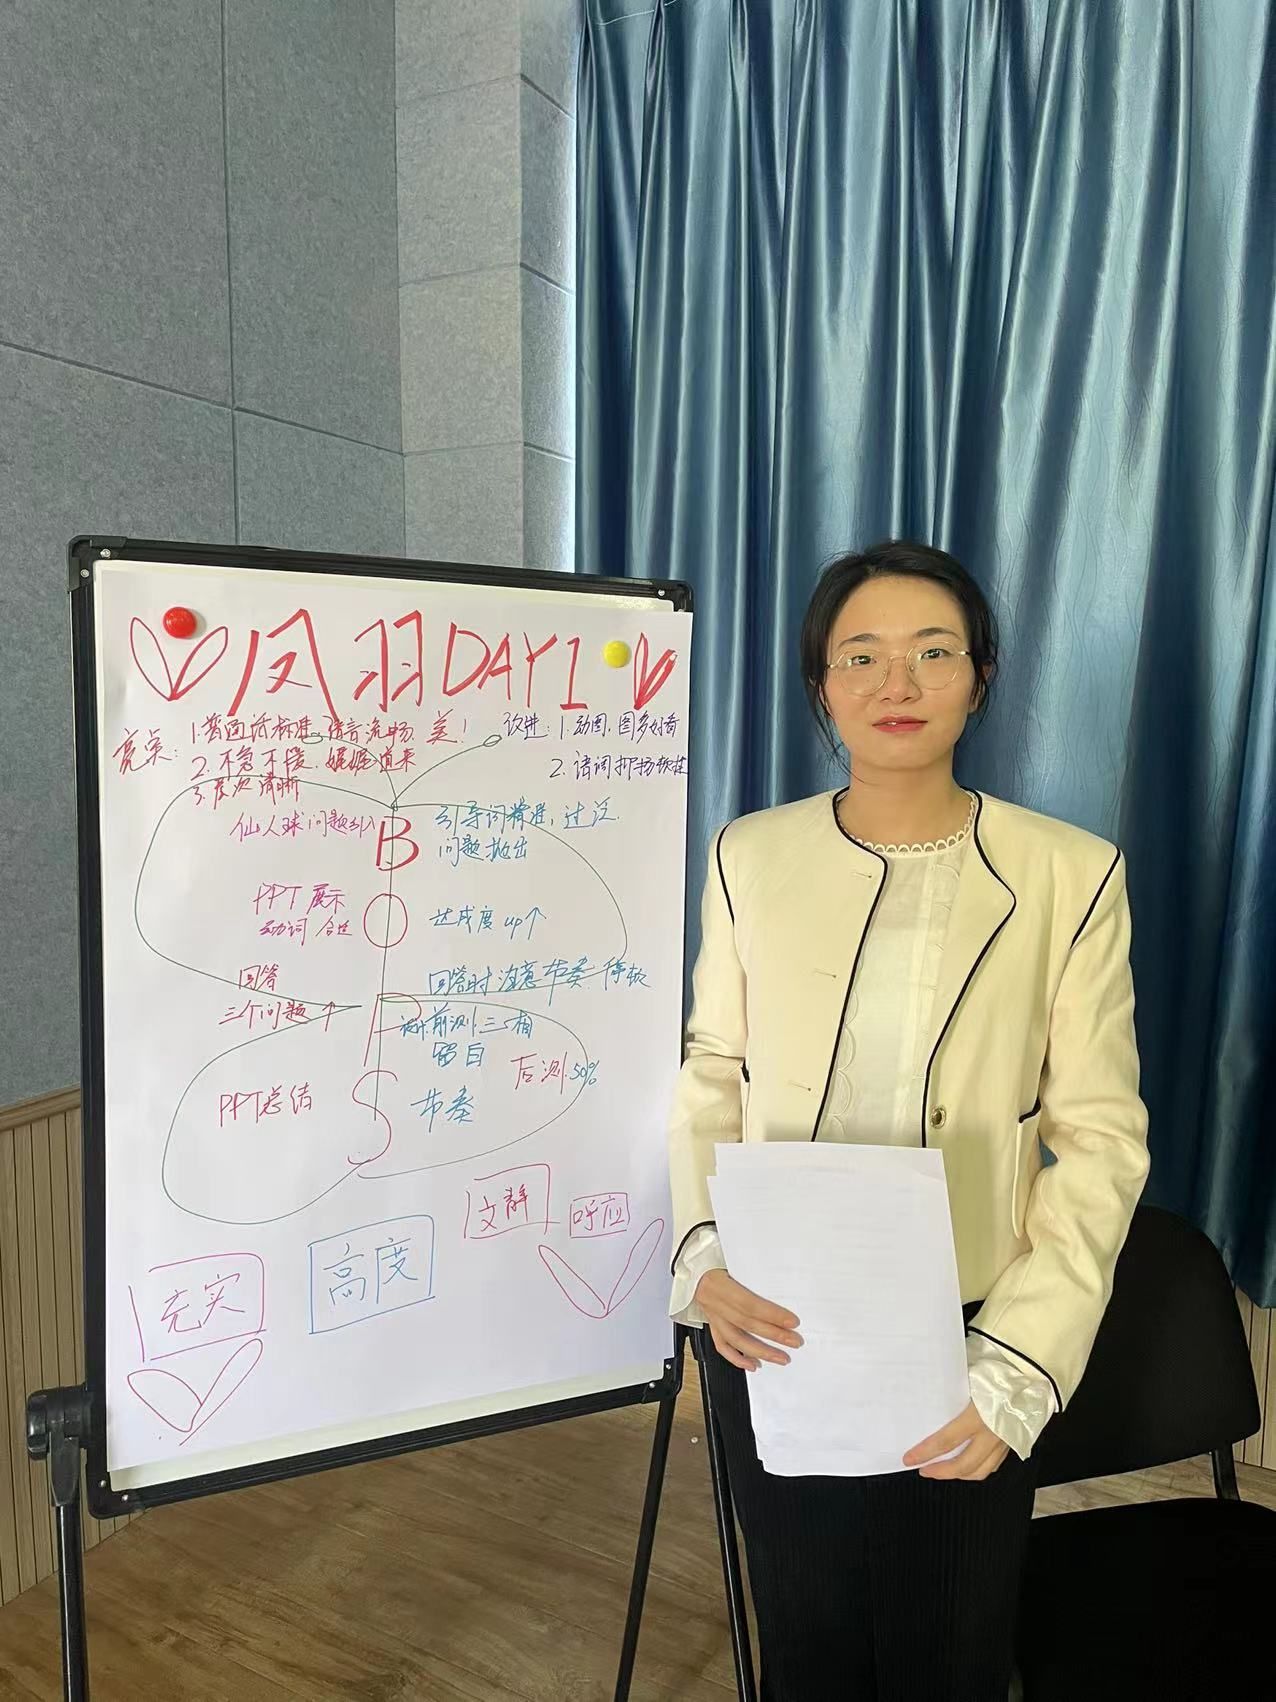 凤羽DAY1
亮点: 1.普通话标准, 语言流畅 美!
2. 不急不慢. 娓娓道来
3. 层次清晰
改进: 1. 动图. 图多好看
2. 语调抑扬顿挫
仙人球问题引入
B
引导词精准, 过泛.
问题抛出
PPT 展示
动词 合适
O
达成度 up↑
回答
三个问题↑
P
回答时注意节奏 停顿
设计前测.三
留白
后测.50%
PPT总结
S
节奏
文静
呼应
高度
充实